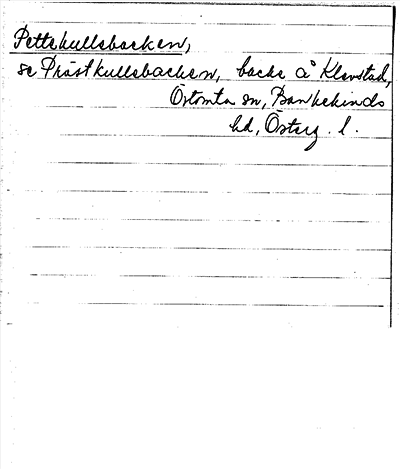 Pettskullsbacken,
se Prästkullsbacken, backe å Klevstad,
Östomta sn, Bankekinds
hd, Österg. l.